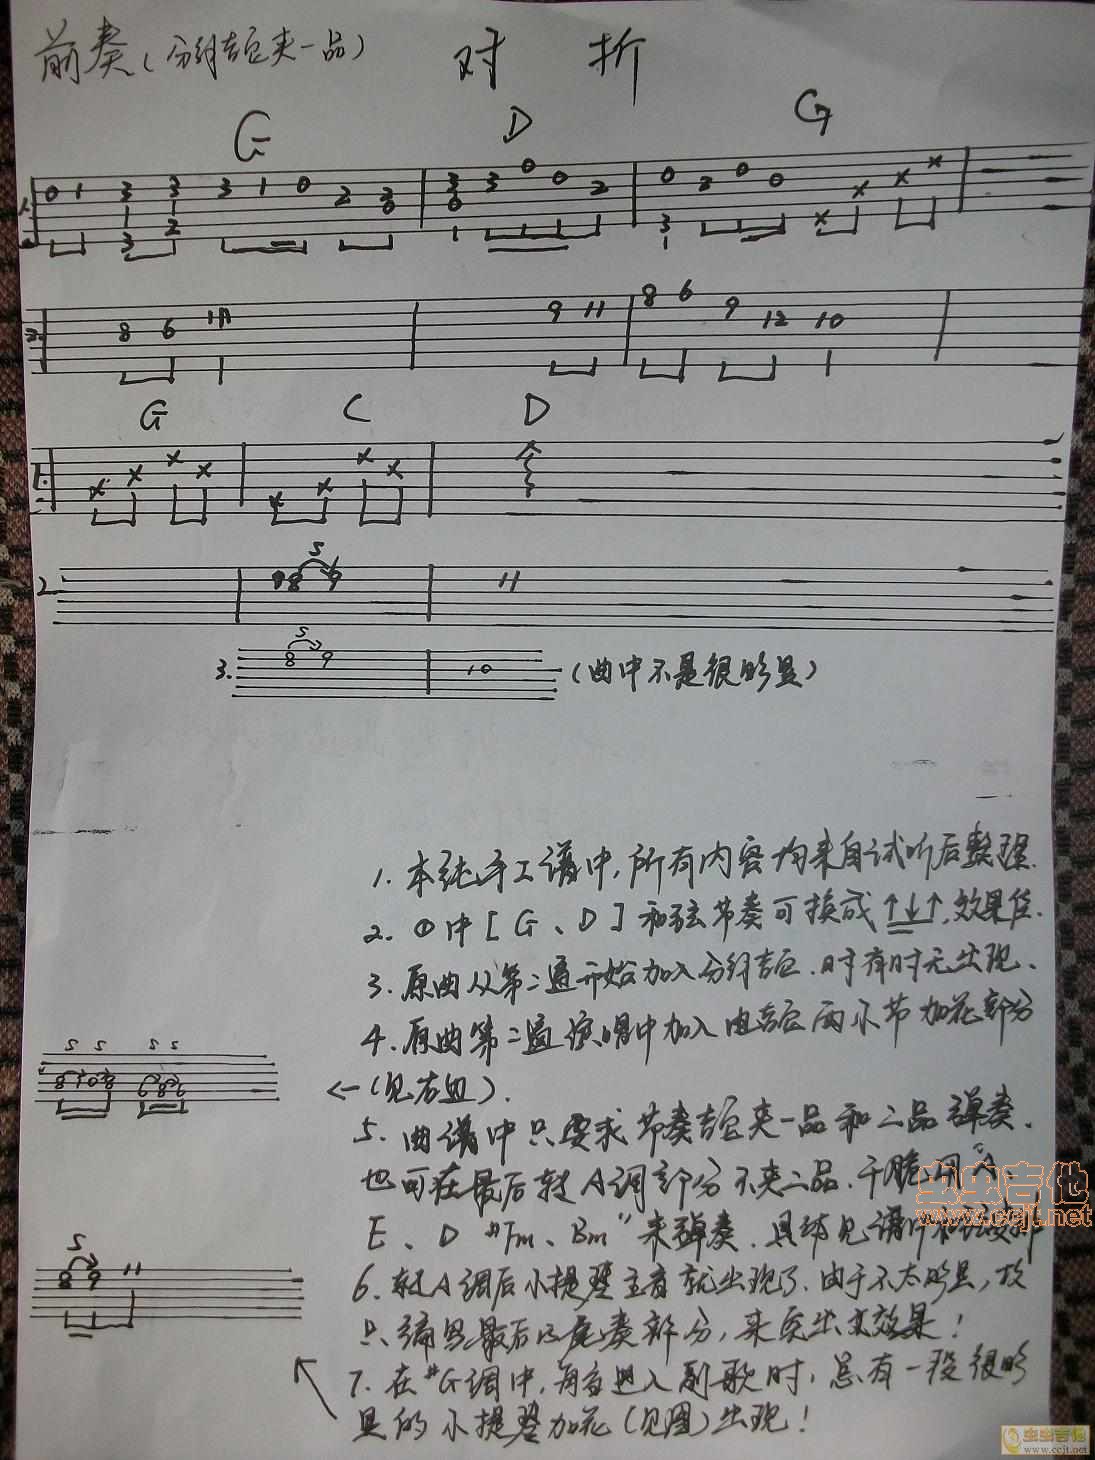 前奏(分解吉它夹一品)
对 折
G D G
1.
0 1 3 3 3 1 0 2 3 3 3 0 0 2 0 2 0 0 × × × ×
3 2 0 0 3
2.
8 6 11 9 11 8 6 9 12 10
G C D
1.
× × × × × × × ×
S
2.
8 9 11
S
3. 8 9 10 (曲中不是很明显)
1. 本纯手工谱中,所有内容均来自试听后整理.
2. ①中[G、D]和弦节奏可换成↑↓↑,效果佳.
3. 原曲从第二遍开始加入分解吉它.时有时无出现.
4. 原曲第二遍演唱中加入电吉它两小节加花部分
S S S S
8 10 8 6 8 6
←(见右边).
5. 曲谱中只要求节奏吉它夹一品和二品弹奏.
也可在最后转A调部分不夹二品.干脆用"A、
E、D #Fm、Bm"来弹奏.具体见谱中和弦安排
S
8 9 11
6. 转A调后小提琴主音就出现了.由于不太明显,故
只编写最后的尾奏部分,来突出其效果!
7. 在#G调中,每当进入副歌时,总有一段很明
显的小提琴加花(见图)出现!
虫虫吉他
www.ccjt.net
虫虫吉他
www.ccjt.net